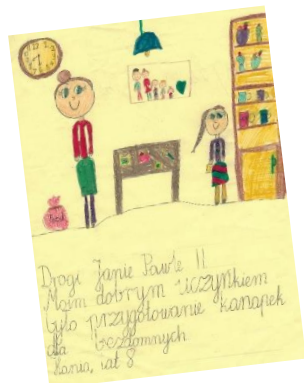 Drogi Janie Pawle II
Moim dobrym uczynkiem
było przygotowanie kanapek
dla bezdomnych
Hania, lat 8